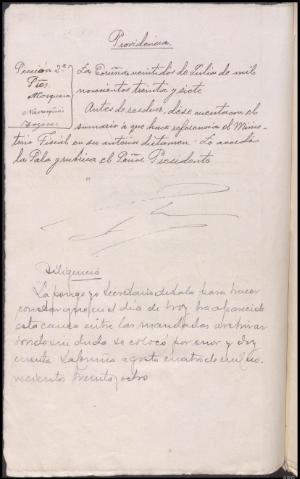 Providencia
Sección 2ª
Pios
Mosquera
Navajas
La Coruña, veintidos de Julio de mil
novecientos treinta y siete
Antes de resolver, dese cuenta con el
sumario a que hace referencia el Minis-
terio Fiscal en su anterior dictamen - Lo acordó
la Sala y rubrica el Señor Presidente
Diligencia
La pongo yo Secretario de Sala para hacer
constar que en el dia de hoy ha aparecido
esta causa entre las mandadas archivar
donde sin duda se coloco por error y doy
cuenta. La Coruña agosto cuatro de mil no-
vecientos treinta y ocho